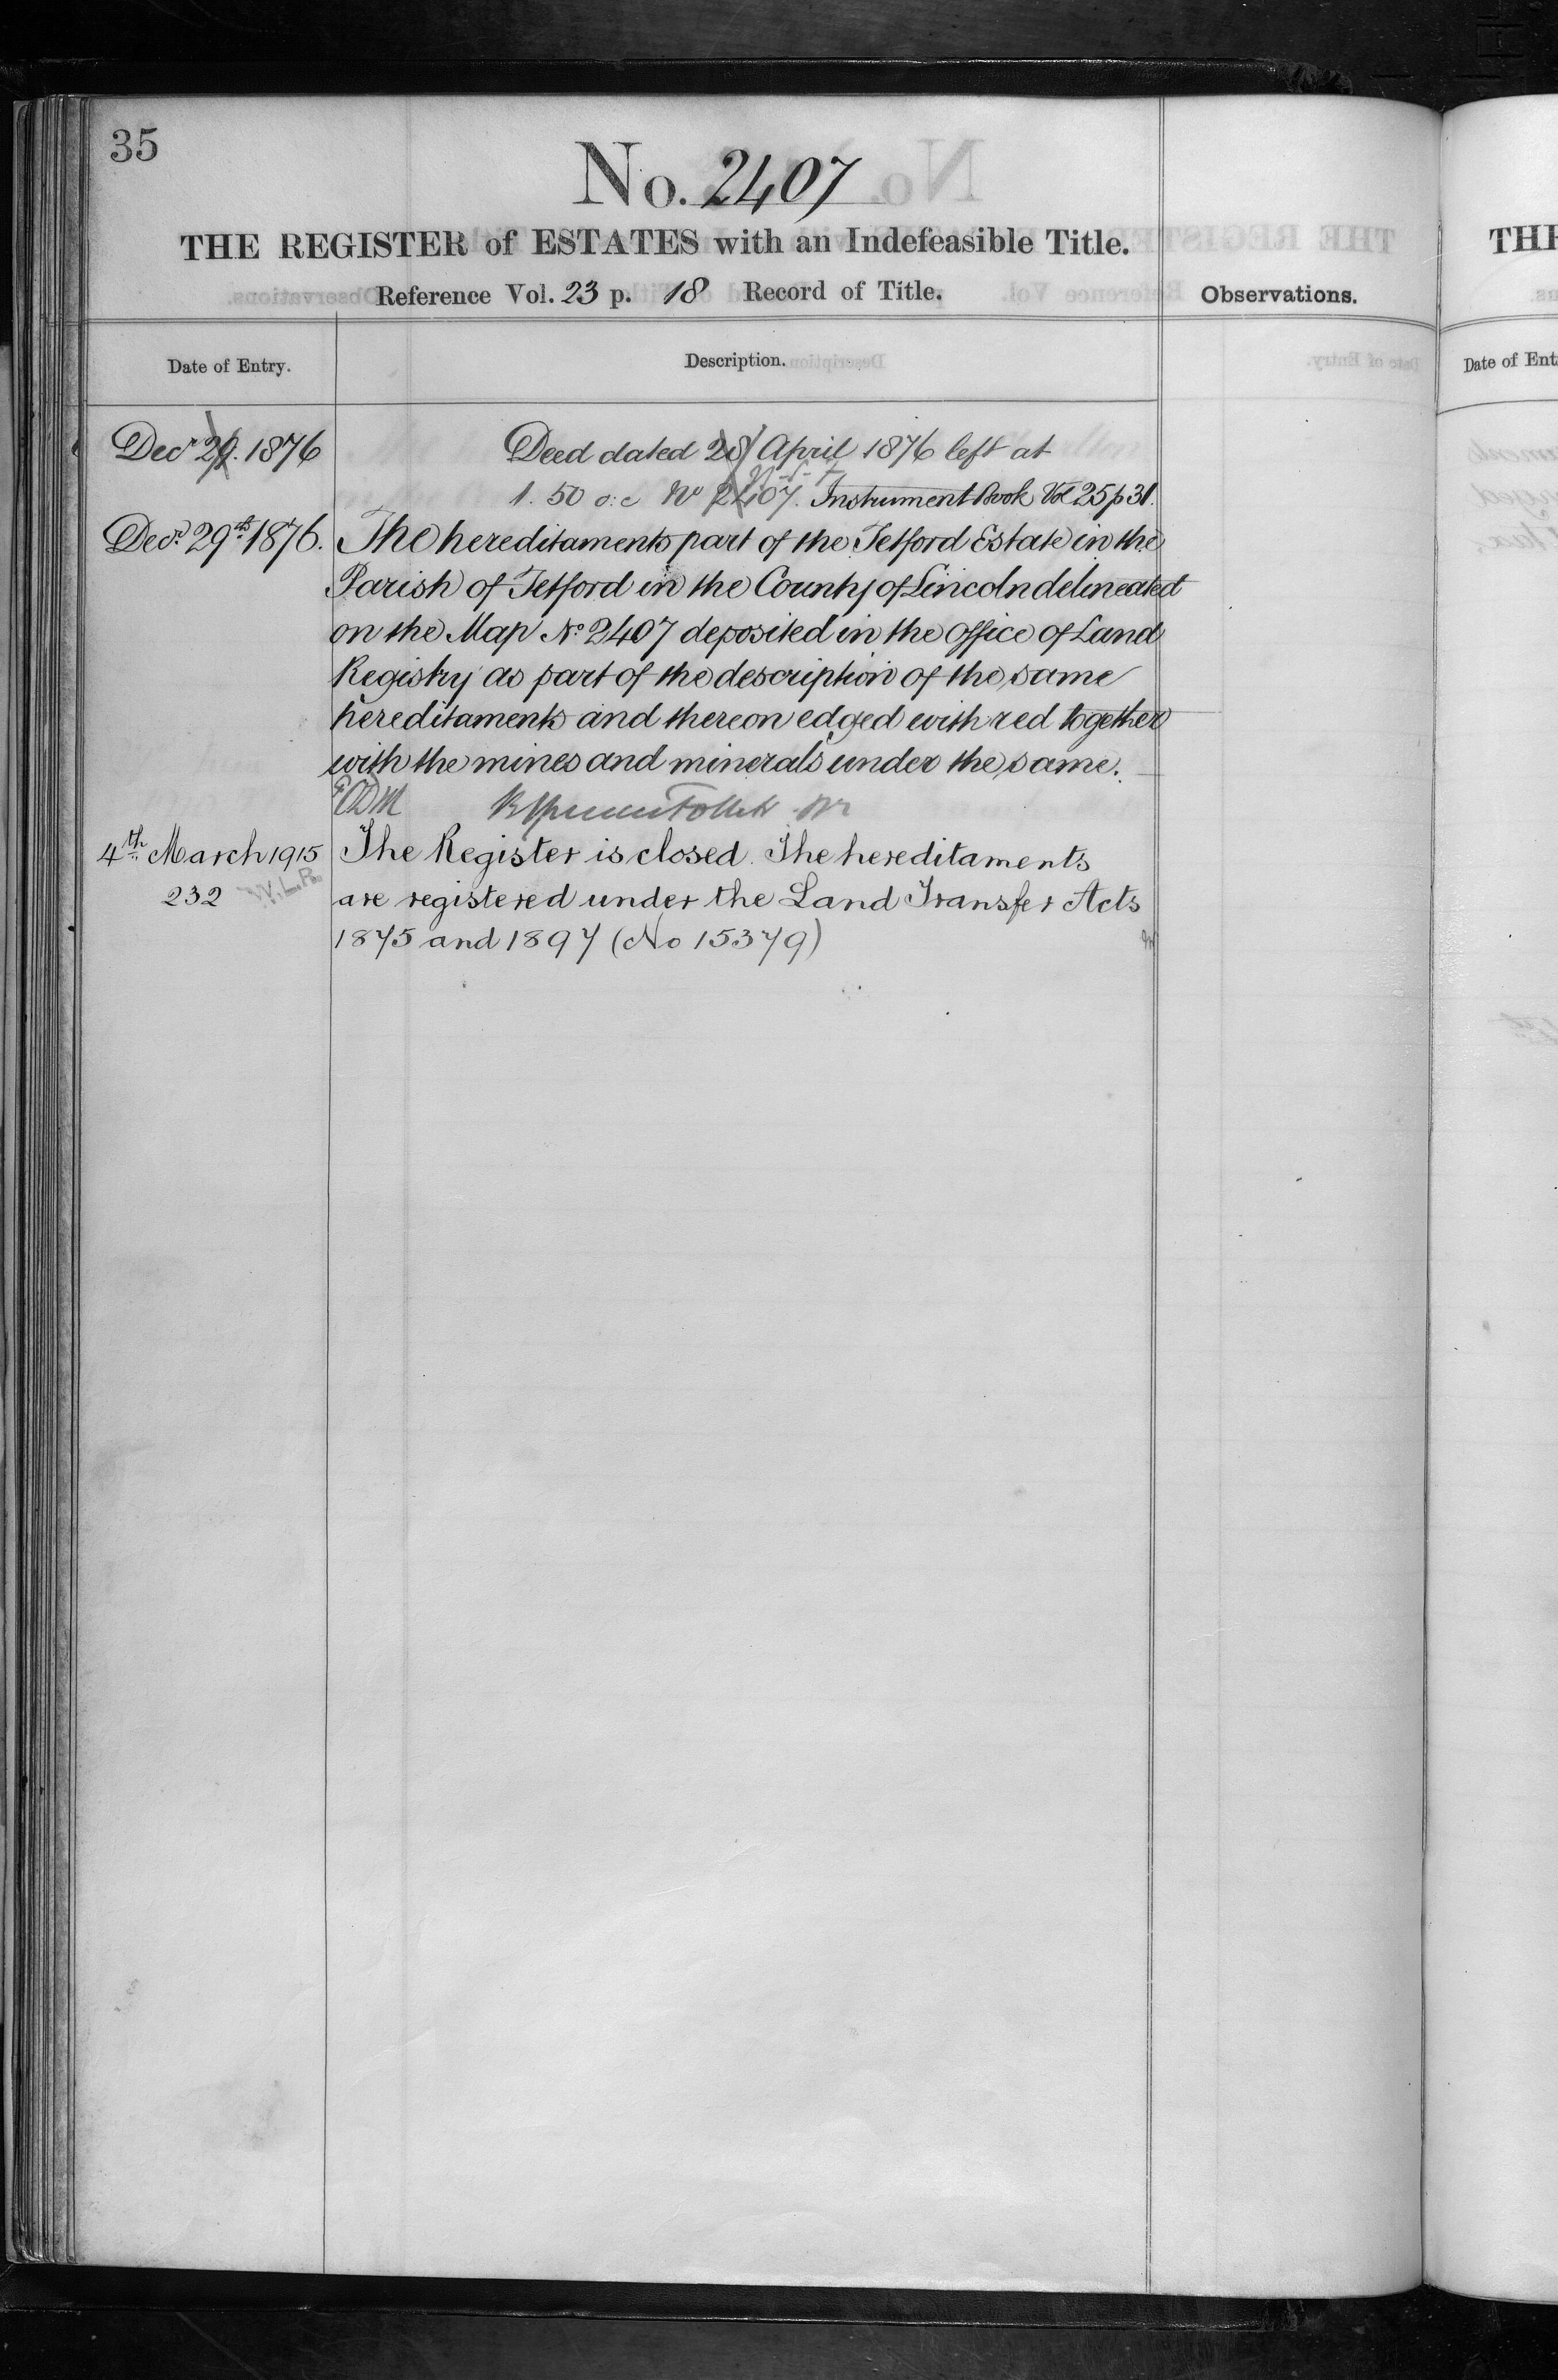 35
No. 2407
THE REGISTER of ESTATES with an Indefeasible Title.
Reference Vol. 23 p. 18 Record of Title.
Observations.
Date of Entry.
Description.
Decr 29. 1876
Deed dated 28 April 1876 left at
1. 50 o:c No 2407. Instrument Book Vol 25 p 31.
Decr. 29th 1876.
The hereditaments part of the Tetford Estate in the
Parish of Tetford in the County of Lincoln delineated
on the Map No 2407 deposited in the office of Land
Registry as part of the description of the same
hereditaments and thereon edged with red together
with the mines and minerals under the same.
4th March 1915
232 W.L.R.
The Register is closed. The hereditaments
are registered under the Land Transfer Acts
1875 and 1897 (No 15379)
THE
Date of Ent